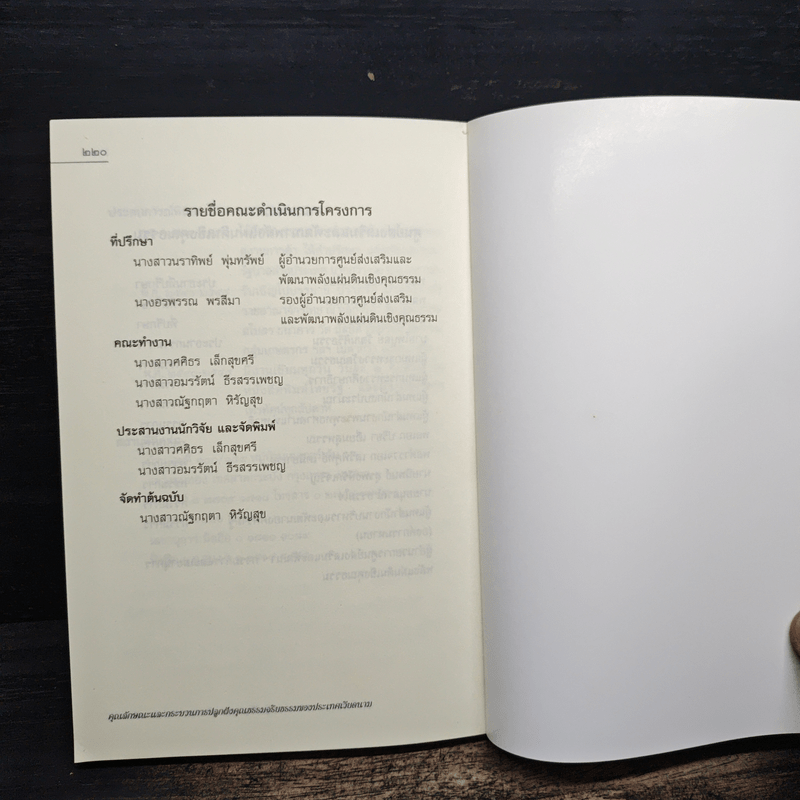 ๒๒๐
รายชื่อคณะดำเนินการโครงการ
ที่ปรึกษา
นางสาวนราทิพย์ พุ่มทรัพย์ ผู้อำนวยการศูนย์ส่งเสริมและ
พัฒนาพลังแผ่นดินเชิงคุณธรรม
นางอรพรรณ พรสีมา รองผู้อำนวยการศูนย์ส่งเสริม
และพัฒนาพลังแผ่นดินเชิงคุณธรรม
คณะทำงาน
นางสาวศศิธร เล็กสุขศรี
นางสาวอมรรัตน์ ธีรสรรเพชญ
นางสาวณัฐกฤตา หิรัญสุข
ประสานงานนักวิจัย และจัดพิมพ์
นางสาวศศิธร เล็กสุขศรี
นางสาวอมรรัตน์ ธีรสรรเพชญ
จัดทำต้นฉบับ
นางสาวณัฐกฤตา หิรัญสุข
คุณลักษณะและกระบวนการปลูกฝังคุณธรรมจริยธรรมของประเทศเวียดนาม